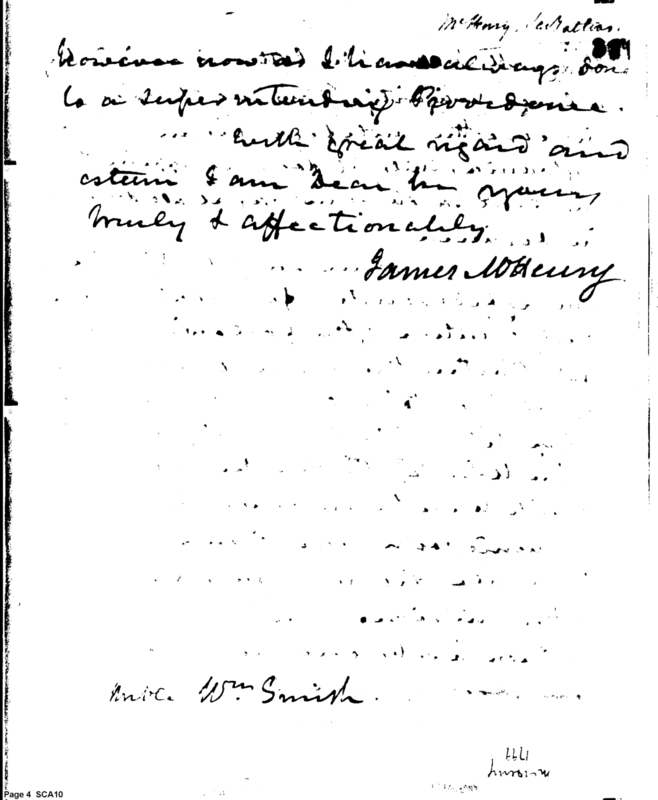 McHenry
384
However now as I have always done
to a superintending Providence.
With great regard and
esteem I am Dear Sir yours
truly & affectionately
James McHenry
Honble. Wm Smith.
1799
Page 4 SCA10